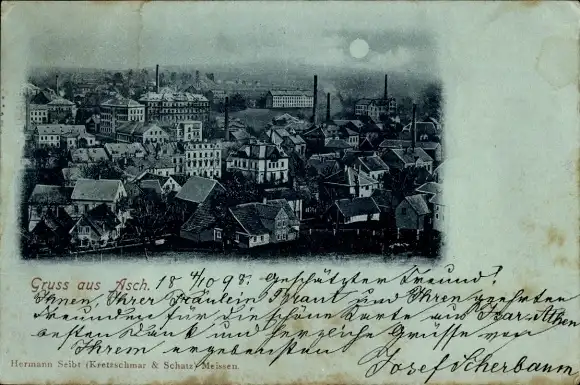 Gruss aus Asch. 18 4/10 98. Geschätzter Freund!
Ihnen, Ihrer Fräulein Braut und Ihren geehrten
Freunden für die schöne Karte aus Isar-Athen
besten Dank und herzliche Grüsse von
Ihrem ergebensten
Josef Scherbaum
Hermann Seibt (Kretzschmar & Schatz) Meissen.